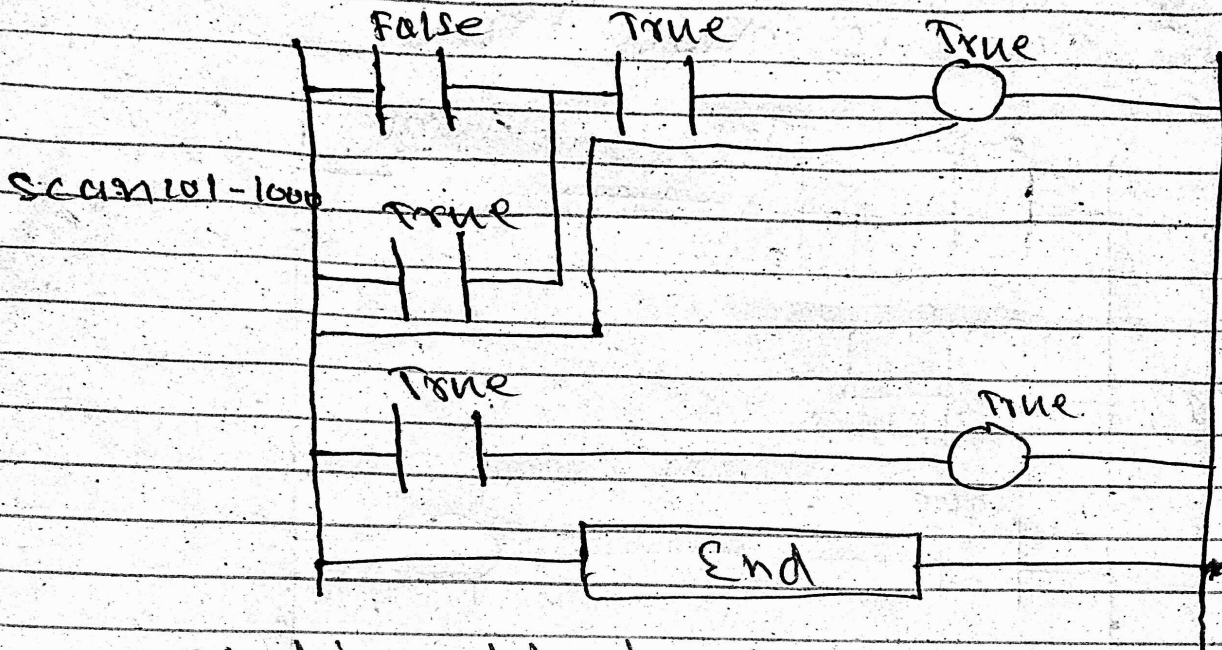 False True True
Scan 101-1000
True
True True
End